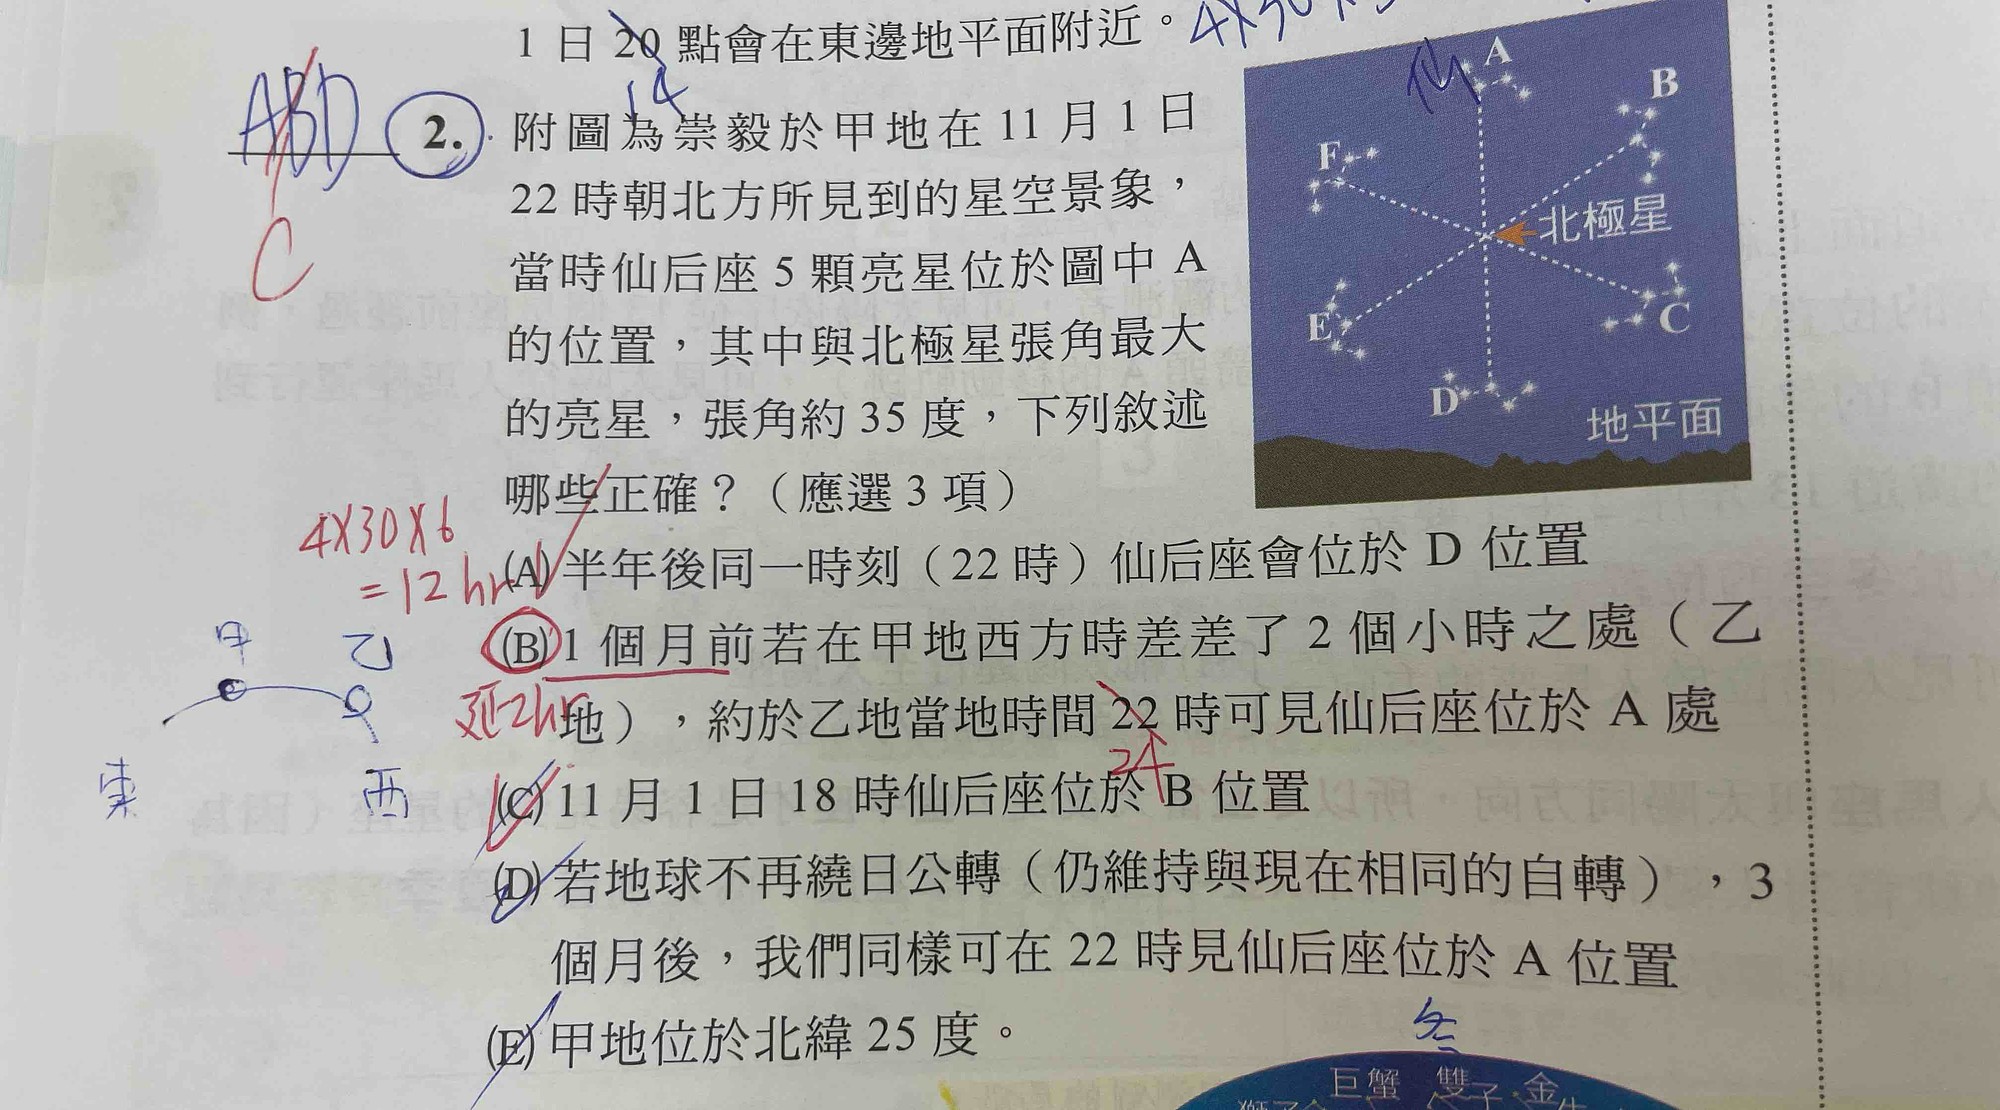 1 日 20 點會在東邊地平面附近。
14
4X30X
ABD
C
2.
附圖為崇毅於甲地在 11 月 1 日
22 時朝北方所見到的星空景象，
當時仙后座 5 顆亮星位於圖中 A
的位置，其中與北極星張角最大
的亮星，張角約 35 度，下列敘述
哪些正確？（應選 3 項）
仙
A
B
F
北極星
E
C
D
地平面
4X30X6
= 12 hr
(A) 半年後同一時刻（22 時）仙后座會位於 D 位置
(B) 1 個月前若在甲地西方時差差了 2 個小時之處（乙
地），約於乙地當地時間 22 時可見仙后座位於 A 處
延2hr
24
甲
乙
東
西
(C) 11 月 1 日 18 時仙后座位於 B 位置
(D) 若地球不再繞日公轉（仍維持與現在相同的自轉），3
個月後，我們同樣可在 22 時見仙后座位於 A 位置
(E) 甲地位於北緯 25 度。
冬
巨蟹 雙子 金牛